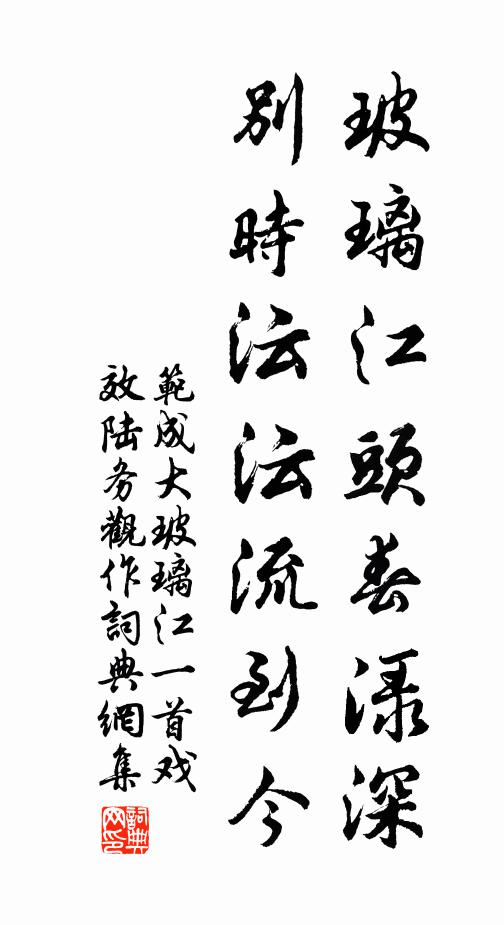 玻璃江頭春渌深
別時沄沄流到今
範成大玻璃江一首戏
效陆务觀作詞典網集
詞典网印